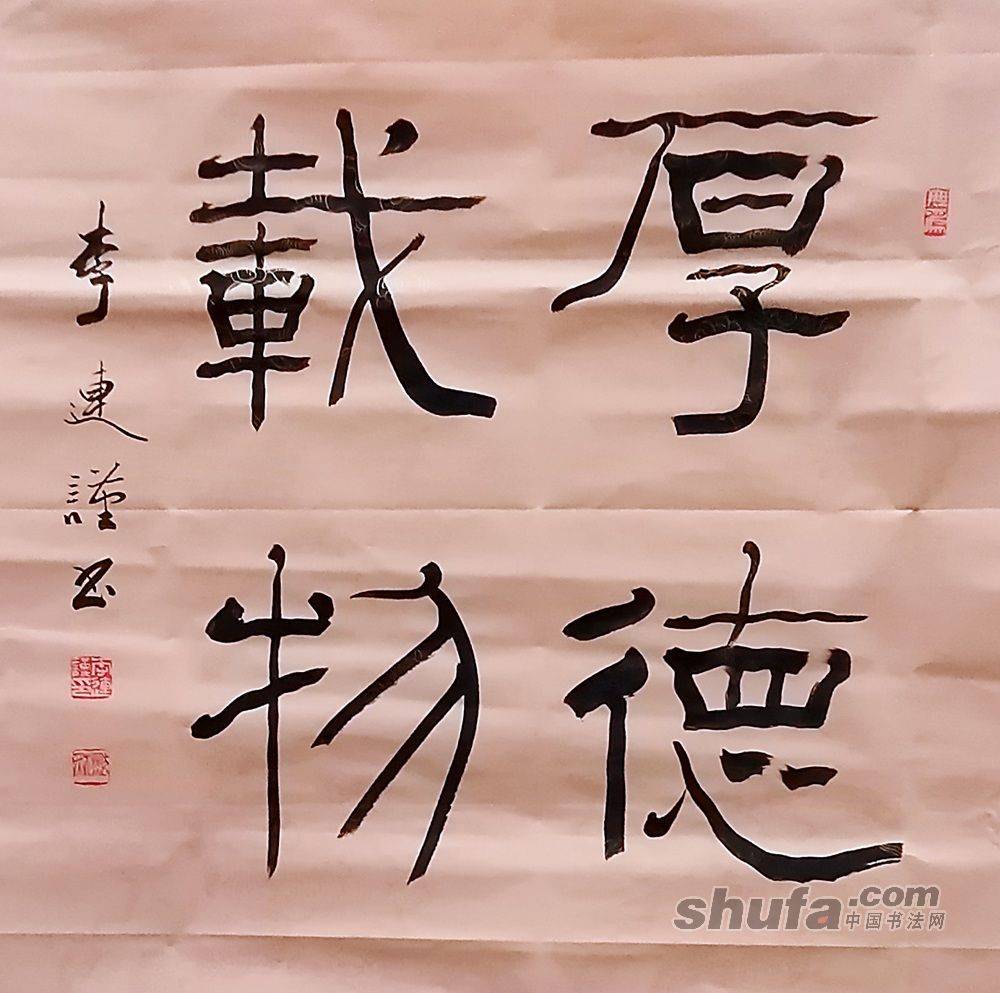 厚德
載物
李連謹书
shufa.com
中国书法网